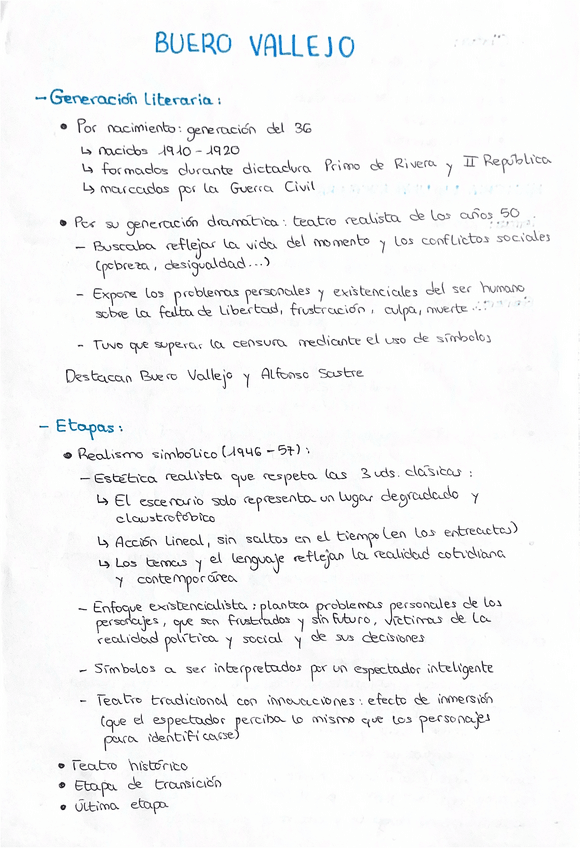 BUERO VALLEJO
- Generación Literaria:
• Por nacimiento: generación del 36
↳ nacidos 1910-1920
↳ formados durante dictadura Primo de Rivera y II República
↳ marcados por la Guerra Civil
• Por su generación dramática: teatro realista de los años 50
- Buscaba reflejar la vida del momento y los conflictos sociales
(pobreza, desigualdad...)
- Expone los problemas personales y existenciales del ser humano
sobre la falta de libertad, frustración, culpa, muerte...
- Tuvo que superar la censura mediante el uso de símbolos
Destacan Buero Vallejo y Alfonso Sastre
- Etapas:
• Realismo simbólico (1946-57):
- Estética realista que respeta las 3 uds. clásicas:
↳ El escenario solo representa un lugar degradado y
claustrofóbico
↳ Acción lineal, sin saltos en el tiempo (en los entreactos)
↳ Los temas y el lenguaje reflejan la realidad cotidiana
y contemporánea
- Enfoque existencialista: plantea problemas personales de los
personajes, que son frustrados y sin futuro, víctimas de la
realidad política y social y de sus decisiones
- Símbolos a ser interpretados por un espectador inteligente
- Teatro tradicional con innovaciones: efecto de inmersión
(que el espectador perciba lo mismo que los personajes
para identificarse)
• Teatro histórico
• Etapa de transición
• Última etapa